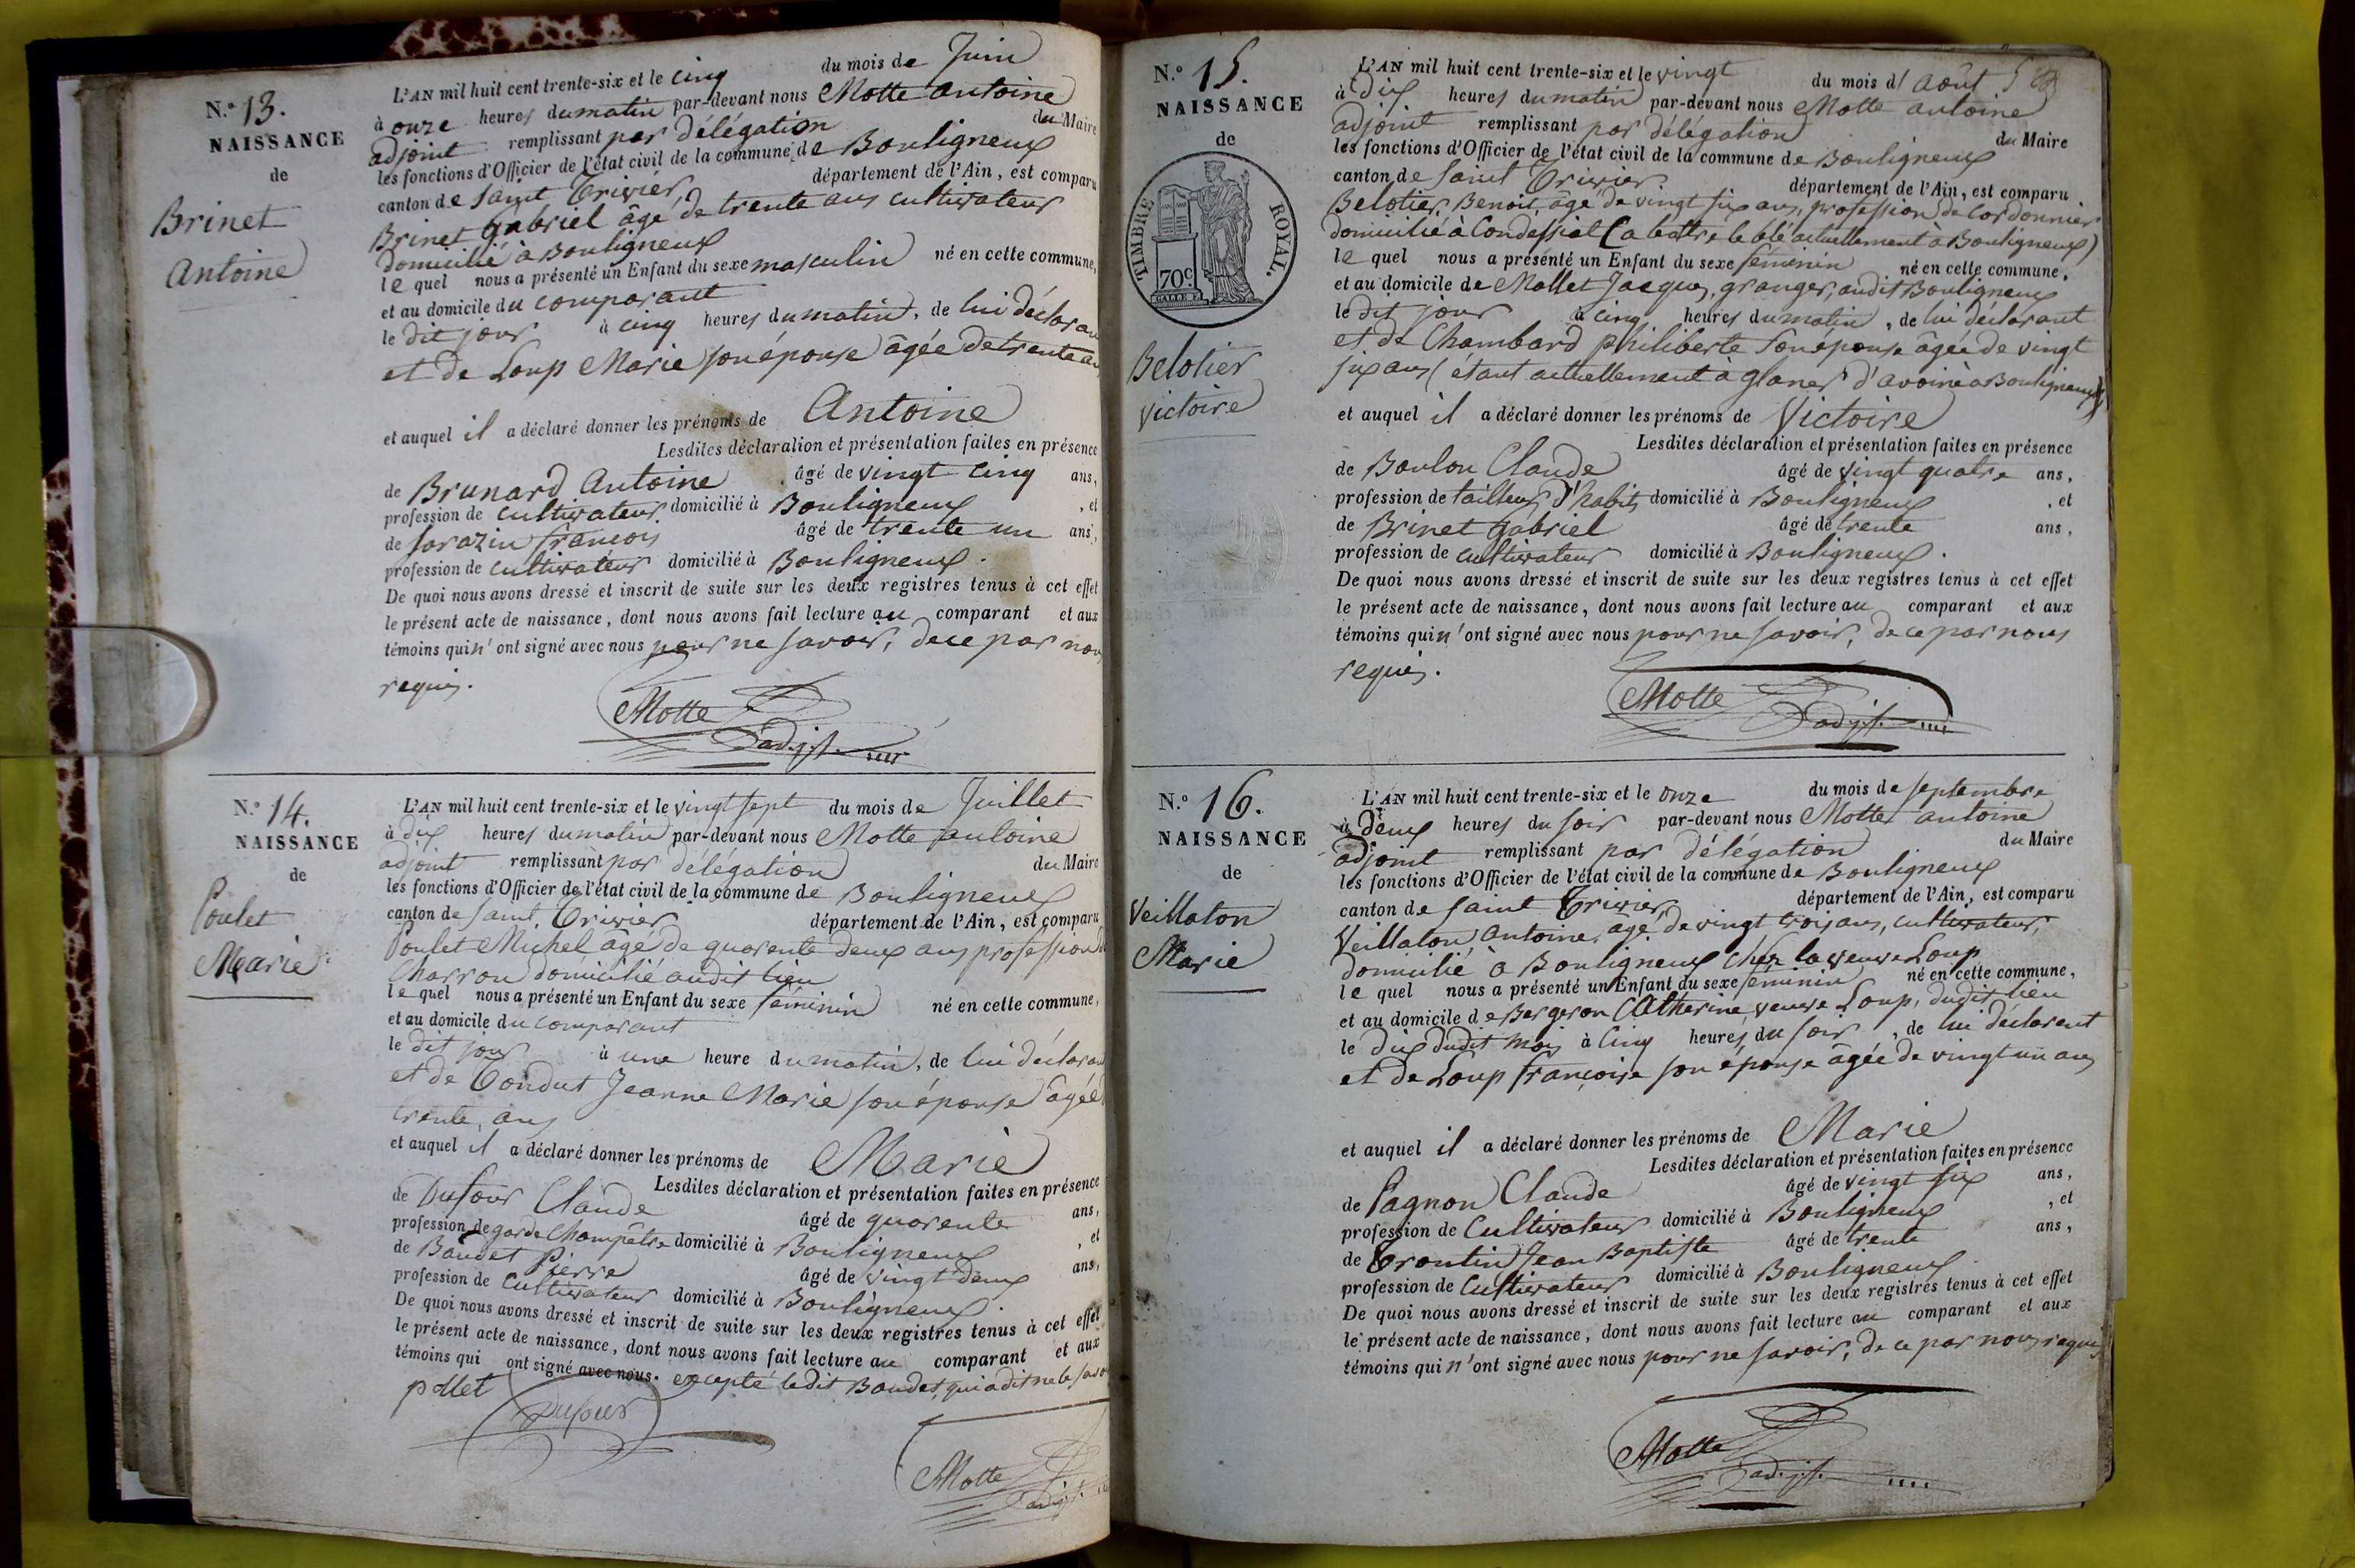 N.° 13.
NAISSANCE
de
Brinet
Antoine
L'AN mil huit cent trente-six et le cinq du mois de Juin
à onze heures du matin par-devant nous Motte antoine
adjoint remplissant par délégation du Maire
les fonctions d'Officier de l'état civil de la commune de Bouligneux
canton de Saint Trivier département de l'Ain, est comparu
Brinet Gabriel âgé de trente ans cultivateur
domicilié à Bouligneux
le quel nous a présenté un Enfant du sexe masculin né en cette commune,
et au domicile du comparant
le dit jour à cinq heures du matin, de lui déclarant
et de Loup Marie son épouse âgée de trente ans
et auquel il a déclaré donner les prénoms de Antoine
Lesdites déclaration et présentation faites en présence
de Brunard Antoine âgé de vingt cinq ans,
profession de cultivateur domicilié à Bouligneux , et
de Sarazin françois âgé de trente un ans,
profession de cultivateur domicilié à Bouligneux.
De quoi nous avons dressé et inscrit de suite sur les deux registres tenus à cet effet
le présent acte de naissance, dont nous avons fait lecture au comparant et aux
témoins qui n'ont signé avec nous pour ne savoir, de ce par nous
requis.
Motte
adj.t
N.° 14.
NAISSANCE
de
Poulet
Marie
L'AN mil huit cent trente-six et le vingt sept du mois de Juillet
à dix heures du matin par-devant nous Motte antoine
adjoint remplissant par délégation du Maire
les fonctions d'Officier de l'état civil de la commune de Bouligneux
canton de Saint Trivier département de l'Ain, est comparu
Poulet Michel âgé de quarante deux ans profession de
Charron domicilié audit lieu
le quel nous a présenté un Enfant du sexe féminin né en cette commune,
et au domicile du comparant
le dit jour à une heure du matin, de lui déclarant
et de Condut Jeanne Marie son épouse âgée
trente ans
et auquel il a déclaré donner les prénoms de Marie
Lesdites déclaration et présentation faites en présence
de Dufour Claude âgé de quarente ans,
profession de garde Champêtre domicilié à Bouligneux , et
de Baudet Pierre âgé de vingt deux ans,
profession de Cultivateur domicilié à Bouligneux.
De quoi nous avons dressé et inscrit de suite sur les deux registres tenus à cet effet
le présent acte de naissance, dont nous avons fait lecture au comparant et aux
témoins qui ont signé avec nous. excepté ledit Baudet, qui a dit ne le savoir
pollet Dufour
Motte
adj.t
N.° 15.
NAISSANCE
de
TIMBRE ROYAL.
70c.
Belotier
Victoire
L'AN mil huit cent trente-six et le vingt du mois d' août
à dix heures du matin par-devant nous Motte antoine
adjoint remplissant par délégation du Maire
les fonctions d'Officier de l'état civil de la commune de Bouligneux
canton de Saint Trivier département de l'Ain, est comparu
Belotier Benoit, âgé de vingt six ans, profession de Cordonnier
domicilié à Condessiat (a battre le blé actuellement à Bouligneux)
le quel nous a présenté un Enfant du sexe féminin né en cette commune,
et au domicile de Mollet Jacques, granger, audit Bouligneux
le dit jour à cinq heures du matin, de lui déclarant
et de Chambard philiberte son épouse âgée de vingt
six ans (étant actuellement à glaner d'avoine à Bouligneux)
et auquel il a déclaré donner les prénoms de Victoire
Lesdites déclaration et présentation faites en présence
de Boulon Claude âgé de vingt quatre ans,
profession de tailleur d'habits domicilié à Bouligneux , et
de Brinet Gabriel âgé de trente ans,
profession de cultivateur domicilié à Bouligneux.
De quoi nous avons dressé et inscrit de suite sur les deux registres tenus à cet effet
le présent acte de naissance, dont nous avons fait lecture au comparant et aux
témoins qui n'ont signé avec nous pour ne savoir, de ce par nous
requis.
Motte
adj.t
N.° 16.
NAISSANCE
de
Veillaton
Marie
L'AN mil huit cent trente-six et le onze du mois de septembre
à deux heures du soir par-devant nous Motte antoine
adjoint remplissant par délégation du Maire
les fonctions d'Officier de l'état civil de la commune de Bouligneux
canton de Saint Trivier département de l'Ain, est comparu
Veillaton Antoine, âgé de vingt trois ans, cultivateur,
domicilié à Bouligneux chez la veuve Loup
le quel nous a présenté un Enfant du sexe féminin né en cette commune,
et au domicile de Bergeron Catherine, veuve Loup, dudit lieu
le dix dudit mois à cinq heures du soir, de lui déclarent
et de Loup françoise son épouse âgée de vingt un ans
et auquel il a déclaré donner les prénoms de Marie
Lesdites déclaration et présentation faites en présence
de Pagnon Claude âgé de vingt six ans,
profession de Cultivateur domicilié à Bouligneux , et
de Trontin Jean Baptiste âgé de trente ans,
profession de Cultivateur domicilié à Bouligneux.
De quoi nous avons dressé et inscrit de suite sur les deux registres tenus à cet effet
le présent acte de naissance, dont nous avons fait lecture au comparant et aux
témoins qui n'ont signé avec nous pour ne savoir, de ce par nous requis
Motte
adj.t